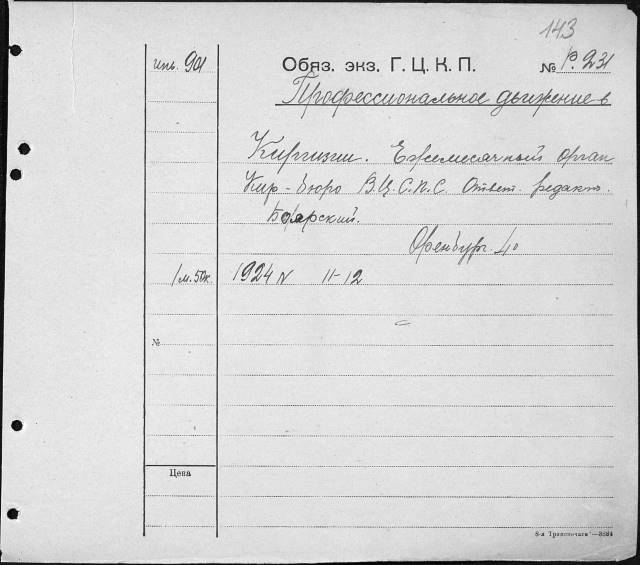 143
инв. 901 Обяз. экз. Г. Ц. К. П. № Р. 231
Профессиональное движение в
Киргизии. Ежемесячный орган
Кир-бюро В.Ц.С.П.С. Ответ. редакт.
Боярский.
Оренбург. 4о
1 м. 50к. 1924 N 11-12
№
Цена